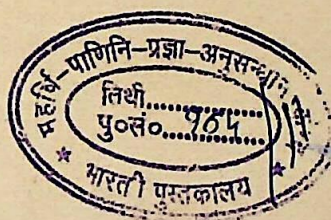 महर्षि-पाणिनि-प्रज्ञा-अनुसन्धान
तिथी..............
पु०सं०...१०५......
★ भारती पुस्तकालय ★